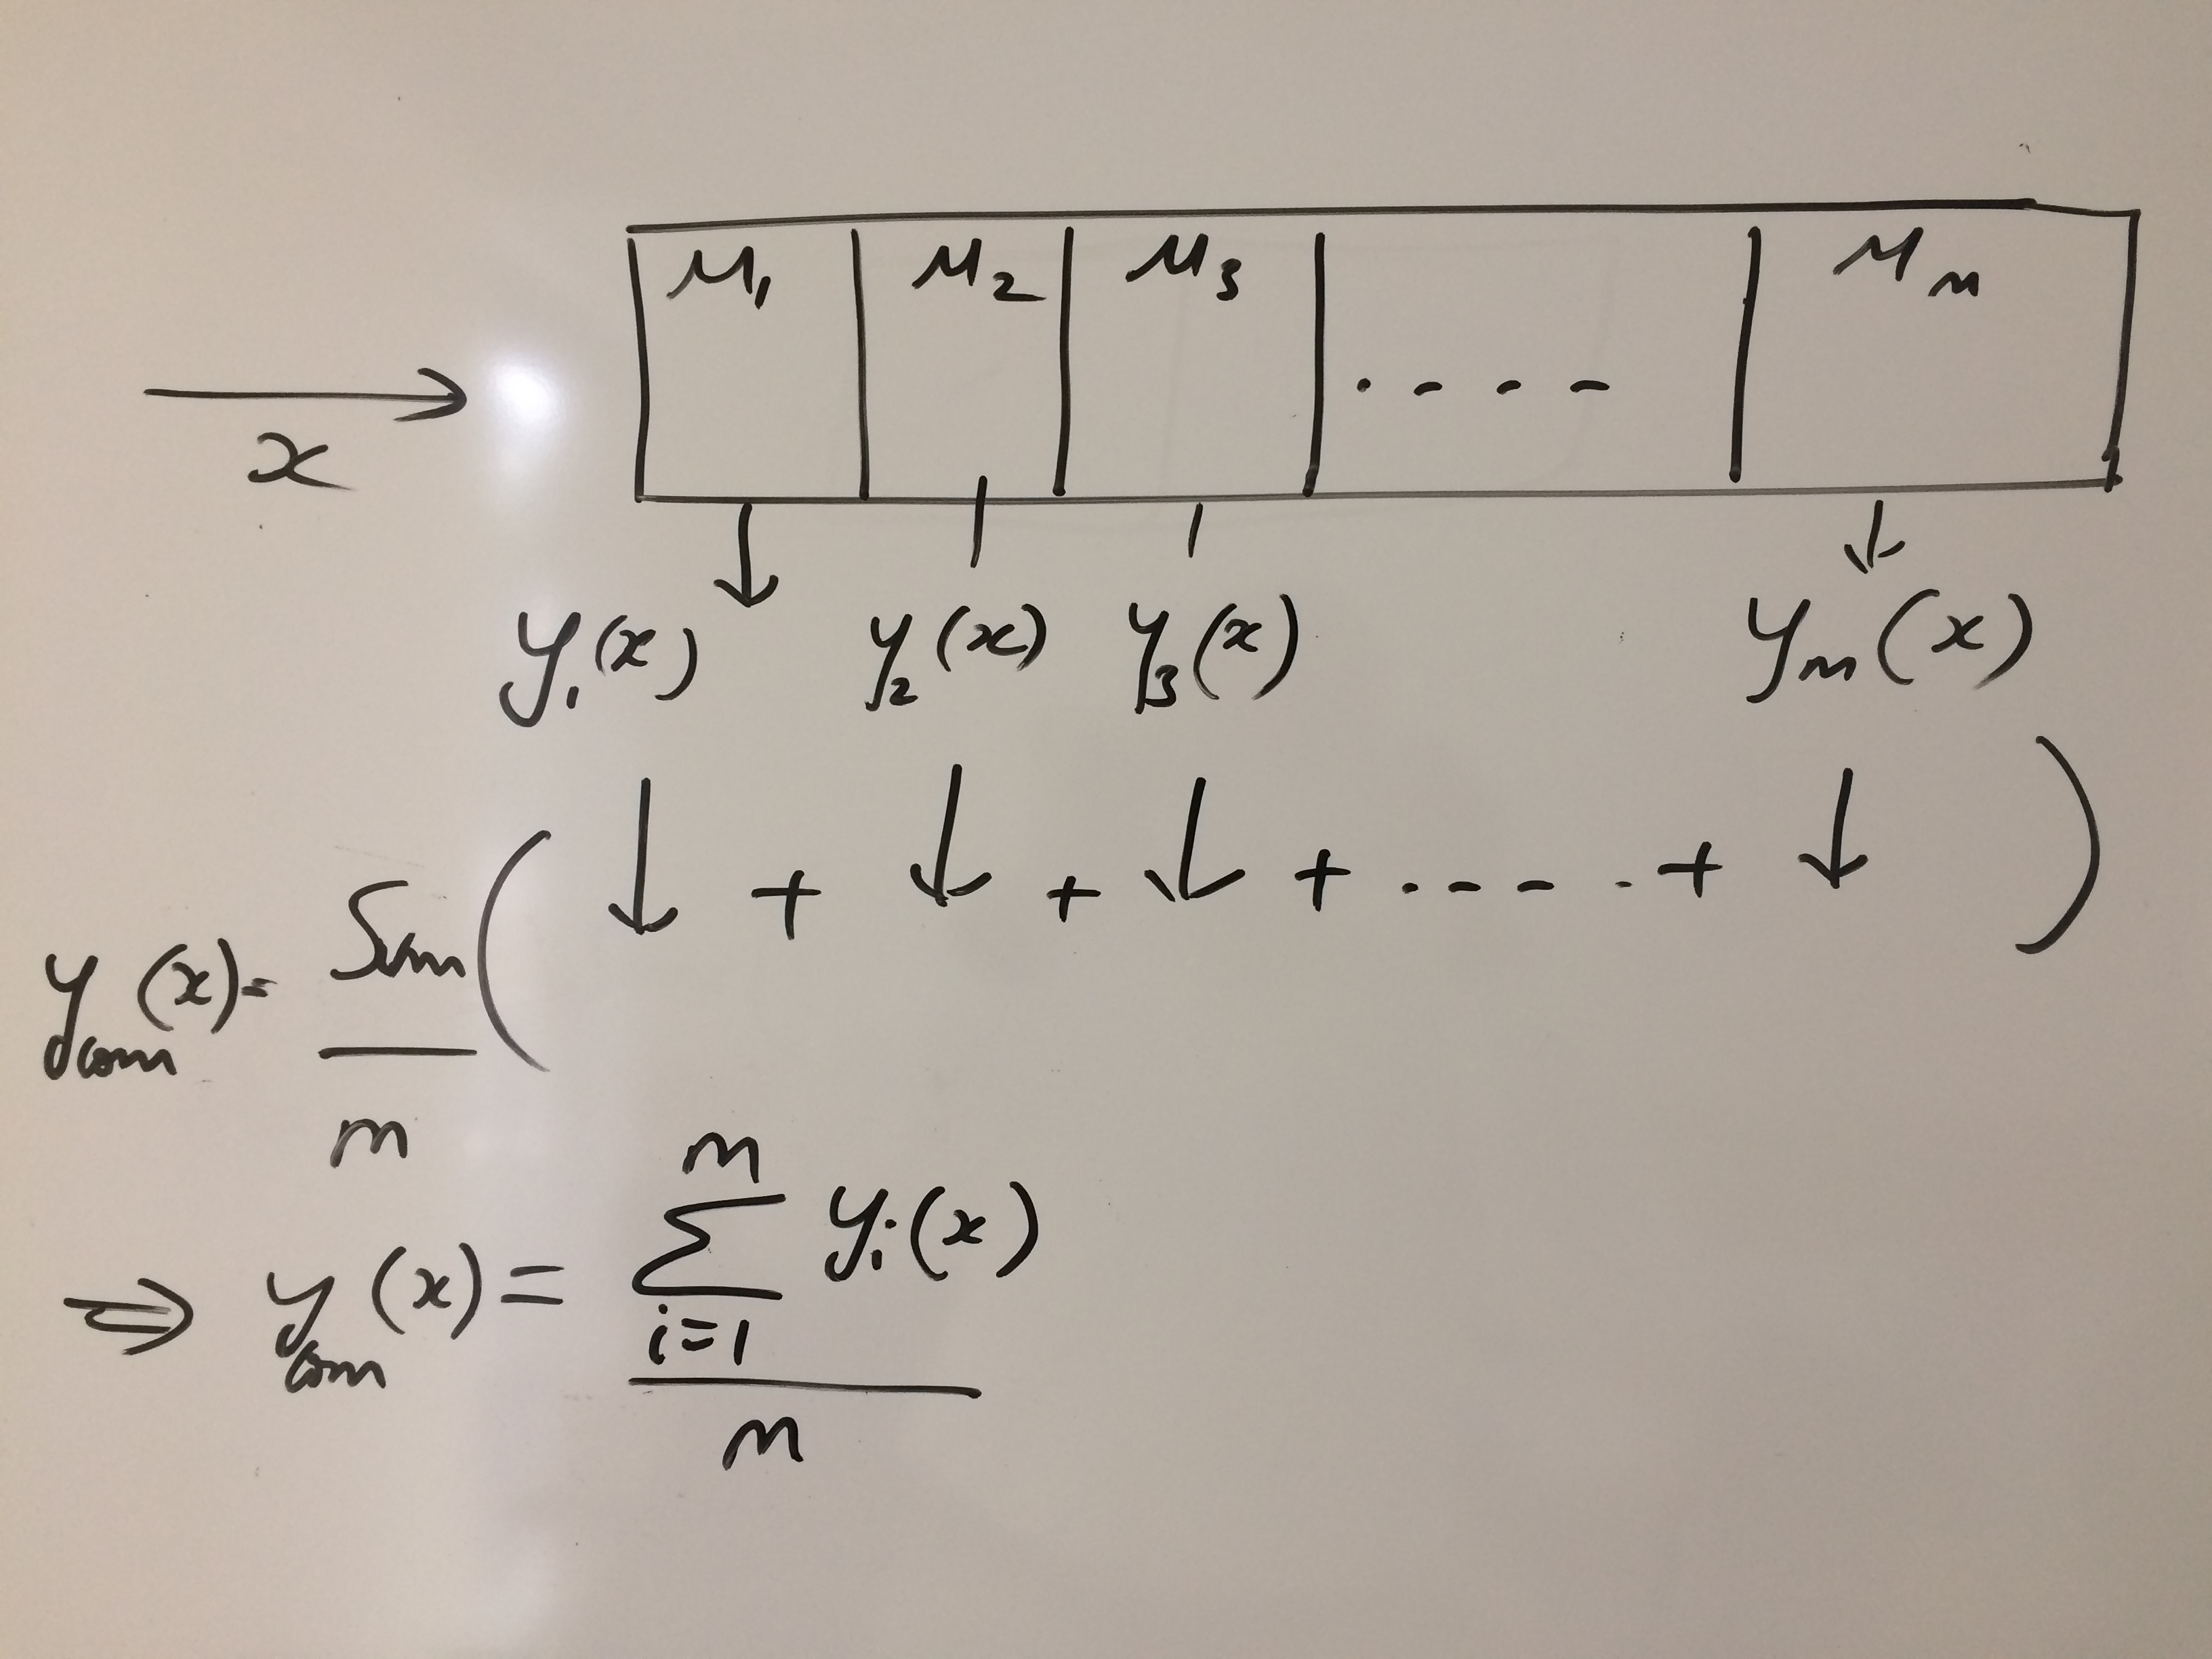 M₁ M₂ M₃ . - - - Mₘ
x
y₁(x) y₂(x) y₃(x) yₘ(x)
y_com(x) = Sum/m ( ↓ + ↓ + ↓ + . - - - . + ↓ )
⇒ y_com(x) = ∑_{i=1}^{m} yᵢ(x) / m